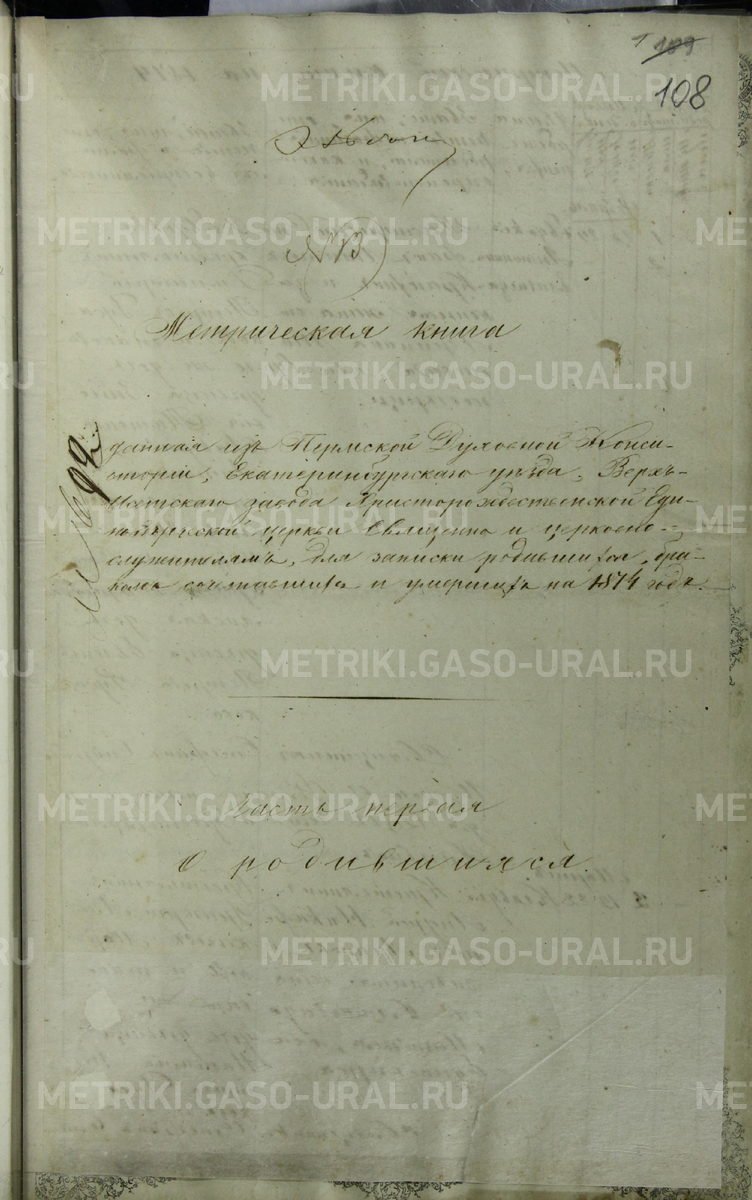 1 109
108
№ 92
Метрическая книга
данная изъ Пермской Духовной Конси-
сторіи, Екатеринбургскаго уѣзда, Верхъ-
Исетскаго завода Христорождественской Еди-
новѣрческой церкви Священно и церковно-
служителямъ, для записки родившихся, бра-
комъ сочетавшихся и умершихъ на 1874 годъ.
Часть первая
О родившихся
METRIKI.GASO-URAL.RU